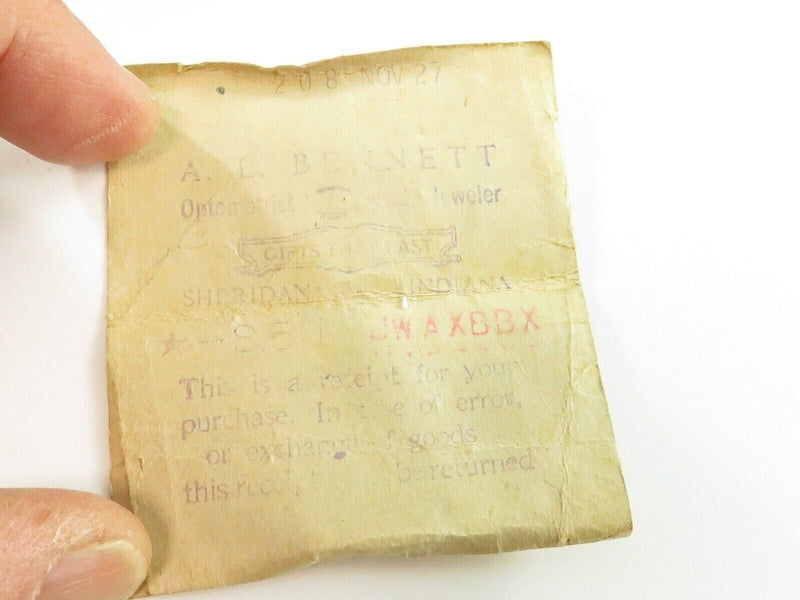 208 NOV 27
A. L. BENNETT
Optometrist and Jeweler
GIFTS THAT LAST
SHERIDAN INDIANA
8.5 UWAXBBX
This is a receipt for your
purchase. In case of error,
or exchange of goods
this receipt be returned.